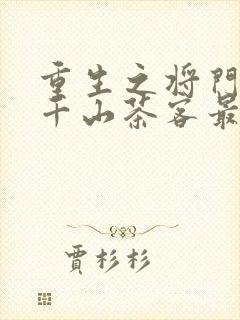 重生之将門
千山茶客最
賈杉杉